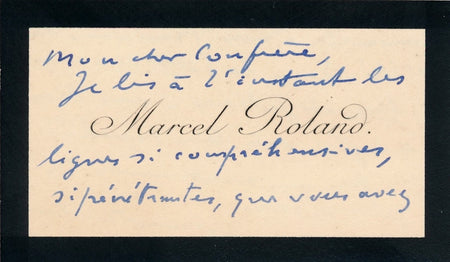 Mon cher Confrère,
Je lis à l'instant les
Marcel Roland.
lignes si compréhensives,
si pénétrantes, que vous avez